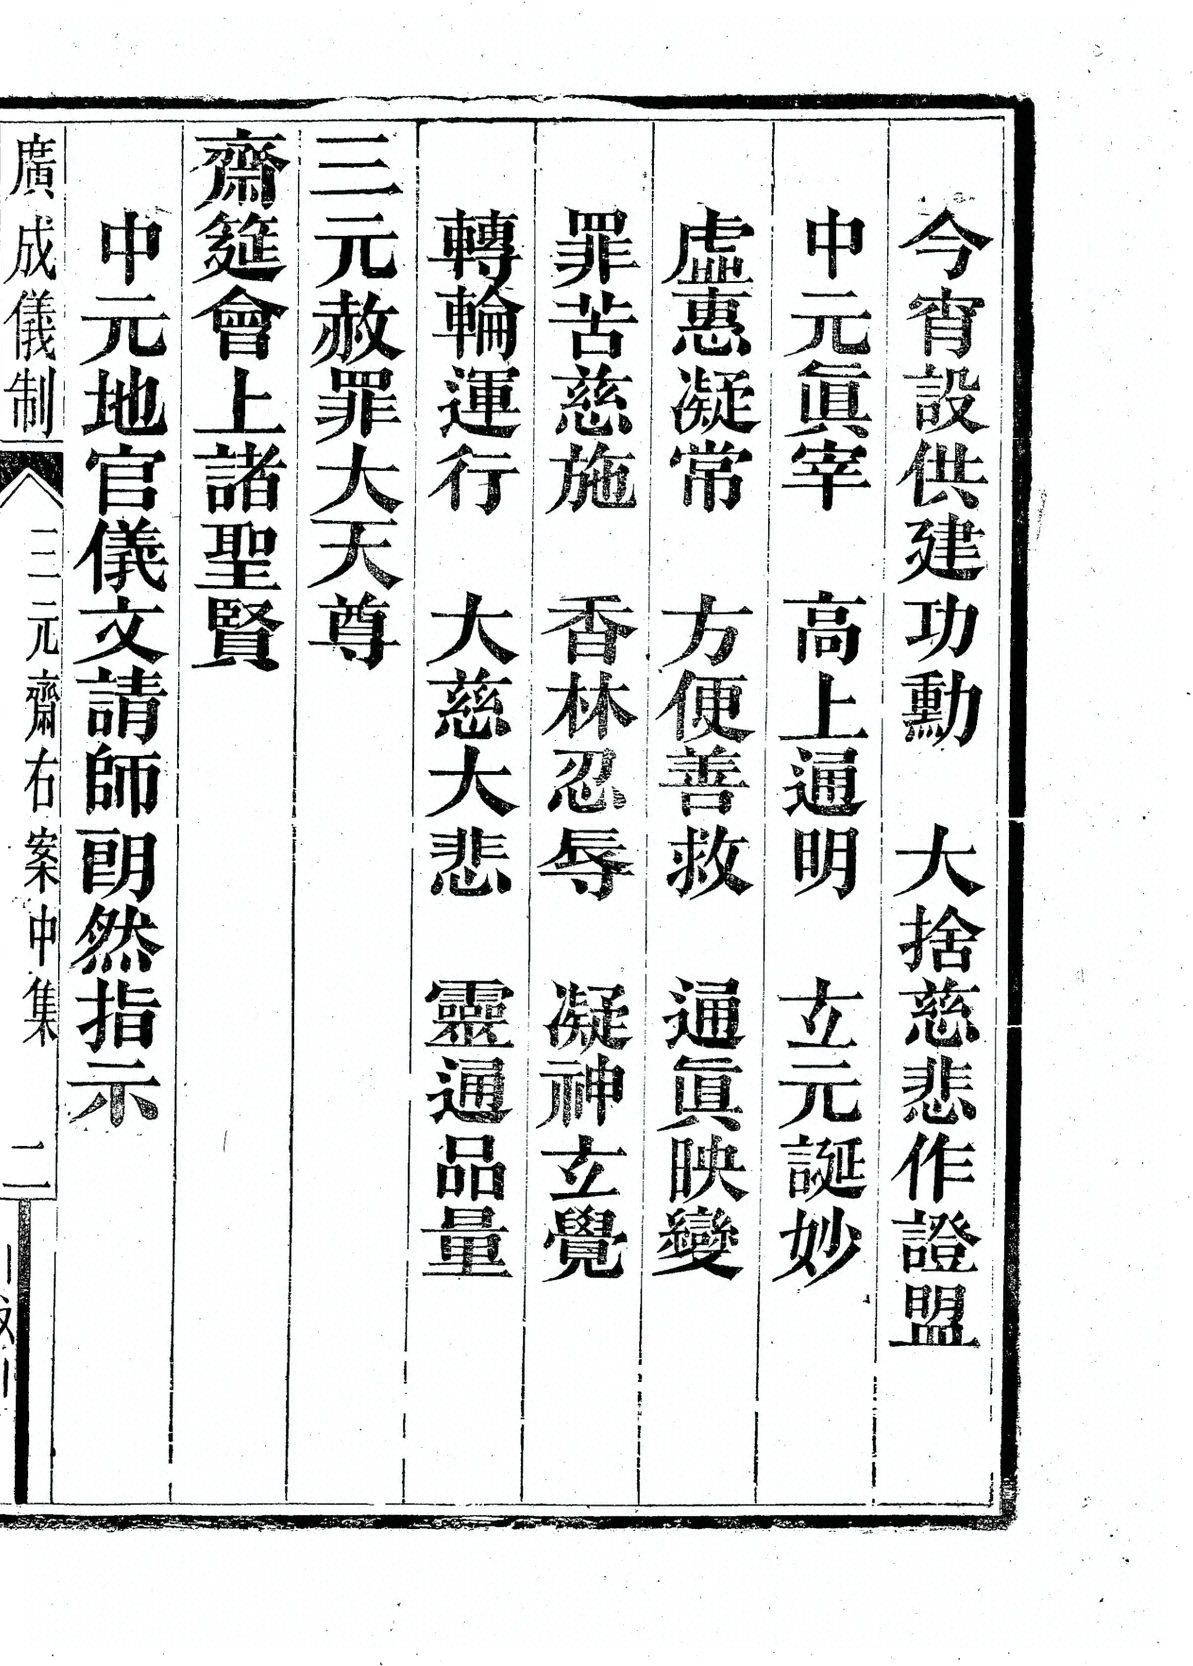 今宵設供建功勳　大捨慈悲作證盟
中元眞宰　高上通明　玄元誕妙
虛惠凝常　方便善救　通眞映變
罪苦慈施　香林忍辱　凝神玄覺
轉輪運行　大慈大悲　靈通品量
三元赦罪大天尊
齋筵會上諸聖賢
中元地官儀文請師朗然指示
廣成儀制　三元齋右案中集　二